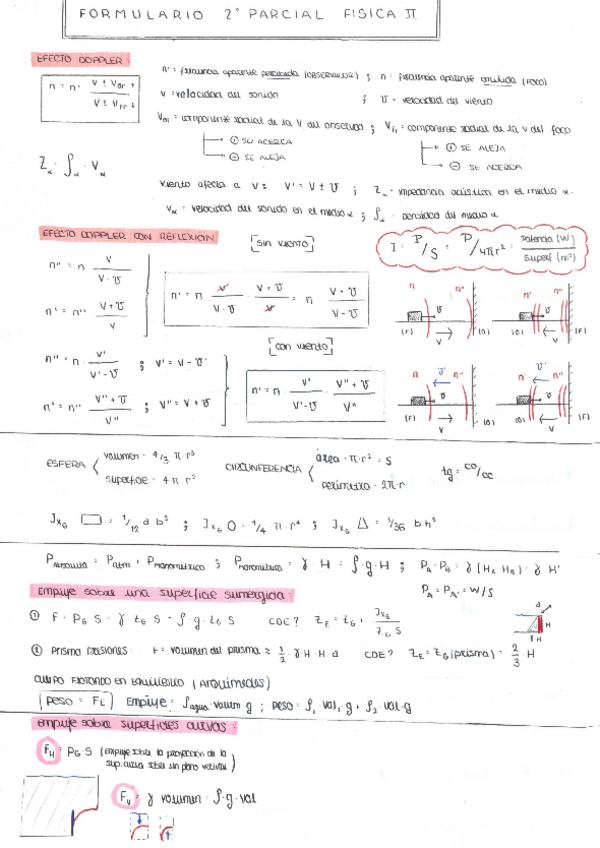 FORMULARIO 2º PARCIAL FISICA II
EFECTO DOPPLER:
n' = frecuencia aparente percibida (OBSERVADOR) ; n = frecuencia aparente emitida (FOCO)
V = velocidad del sonido ; v = velocidad del viento
componente radial de la V del observad ; componente radial de la V del foco
⊕ SE ACERCA ⊕ SE ALEJA
⊖ SE ALEJA ⊖ SE ACERCA
Zα = ρα · Vα
Viento afecta a V: V' = V ± v ; Zα = impedancia acústica en el medio α.
Vα = velocidad del sonido en el medio α ; ρα = densidad del medio α
EFECTO DOPPLER CON REFLEXION
[sin viento]
I = P/S = P/4πr² = Potencia (W) / superf (m²)
n'' = n V / V - v
n' = n'' V + v / V
n' = n V / V - v · V + v / V = n V + v / V - v
[con viento]
n'' = n V' / V' - v ; V' = V - v
n' = n'' V'' + v / V'' ; V'' = V + v
n' = n V' / V' - v · V'' + v / V''
ESFERA volumen = 4/3 π r³
superficie = 4 π r²
CIRCUNFERENCIA área = π · r² = S
perimetro = 2π · r
tg = co/cc
= 1/12 a b³ ; = 1/4 π · r⁴ ; = 1/36 b h³
P absoluta = P atm + P manometrica ; P manometrica = γ H = ρ · g · H ; PA - PB = γ (HA HB) = γ H'
PA = PA' = W/S
Empuje sobre una superficie sumergida:
① F = PG S = γ ZG S = ρ g ZG S CDE? ZE = ZG + IXG / ZG S
② Prisma presiones: F = volumen del prisma = 1/2 γ H H a CDE? ZE = ZG (prisma) = 2/3 H
CUERPO FLOTANDO EN EQUILIBRIO (ARQUIMEDES)
Empuje = ρ agua · volum · g ; peso = ρ1 vol1 · g + ρ2 · vol · g
Empuje sobre superficies curvas:
FH = PG S (empuje sobre la proyección de la
sup. curva sobre un plano vertical)
FV = γ volumen = ρ · g · vol